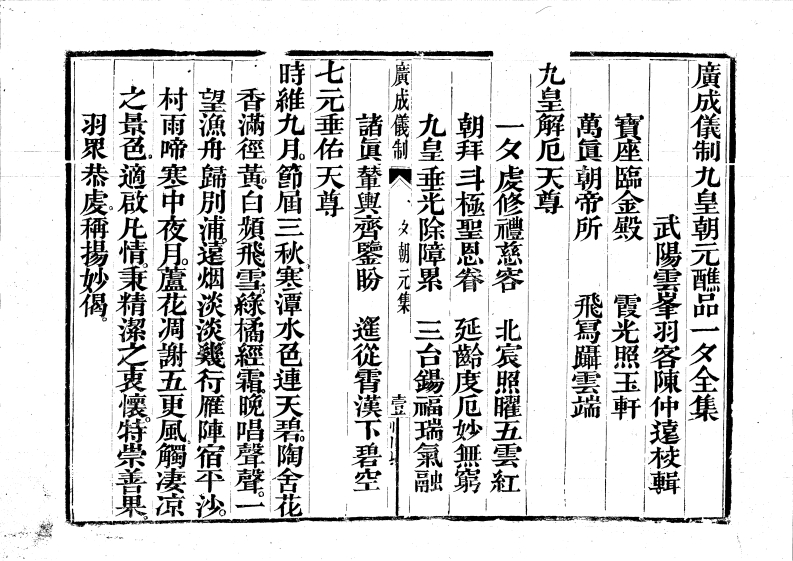 廣成儀制九皇朝元醮品一夕全集
武陽雲峯羽客陳仲遠校輯
寶座臨金殿　霞光照玉軒
萬眞朝帝所　飛舄躡雲端
九皇解厄天尊
一夕虔修禮慈容　北宸照曜五雲紅
朝拜斗極聖恩眷　延齡度厄妙無窮
九皇垂光除障累　三台錫福瑞氣融
廣成儀制　一夕朝元集　壹
諸眞輦輿齊鑒盼　遙從霄漢下碧空
七元垂佑天尊
時維九月。節屆三秋。寒潭水色連天碧。陶舍花
香滿徑黃。白蘋飛雪。綠橘經霜。晚唱聲聲。一
望漁舟歸別浦。遠烟淡淡。幾行雁陣宿平沙。
村雨啼寒中夜月。蘆花凋謝五更風。觸凄凉
之景色。適啟凡情。秉精潔之衷懷。特崇善果。
羽眾恭虔。稱揚妙偈。